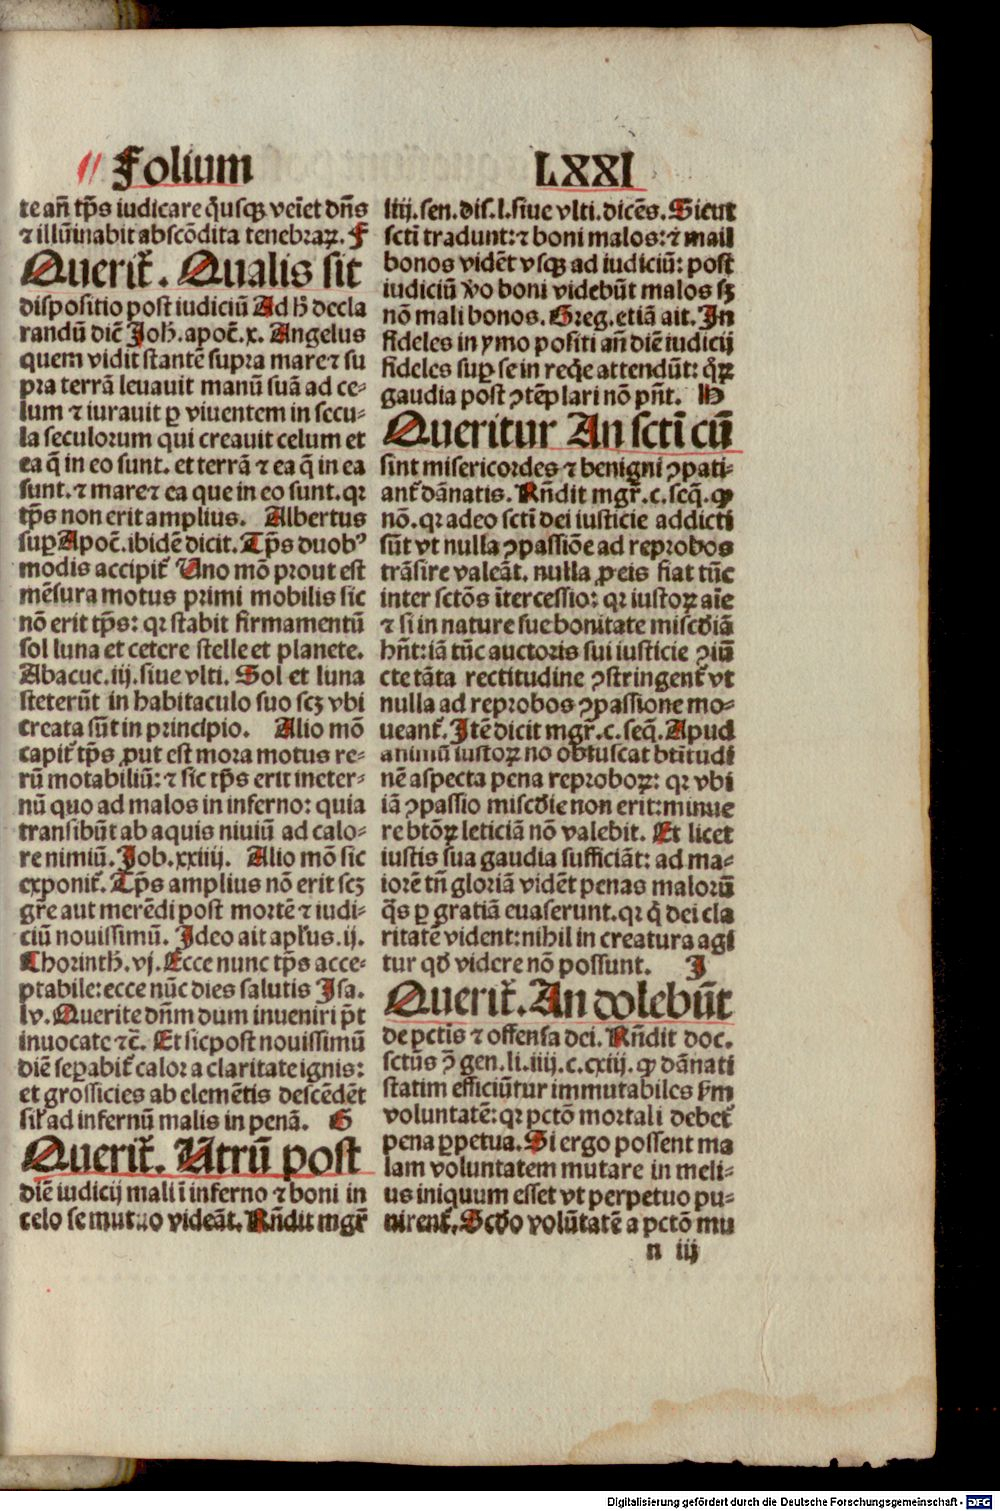 Folium LXXI
te añ tp̄s iudicare q̄usqȝ veīet dn̄s
⁊ illūinabit abscōdita tenebraꝝ. F
Querit᷑. Qualis sit
dispositio post iudiciū Ad h̄ decla
randū diē Joh̄. apoc̄. x. Angelus
quem vidit stantē supra mare⁊ su
pra terrā leuauit manū suā ad ce⸗
lum ⁊ iurauit ꝑ viuentem in secu⸗
la seculorum qui creauit celum et
ea q̄ in eo sunt. et terrā ⁊ ea q̄ in ea
sunt. ⁊ mare⁊ ea que in eo sunt. qꝛ
tp̄s non erit amplius. Albertus
suꝑ Apoc̄. ibidē dicit. Tp̄s duobꝰ
modis accipit᷑ Uno mō prout est
mēsura motus primi mobilis sic
nō erit tp̄s: qꝛ stabit firmamentū
sol luna et cetere stelle et planete.
Abacuc. iij. siue vlti. Sol et luna
steterūt in habitaculo suo scȝ vbi
creata sūt in principio. Alio mō
capit᷑ tp̄s ꝓut est mora motus re⸗
rū motabiliū: ⁊ sic tp̄s erit ineter⸗
nū quo ad malos in inferno: quia
transibūt ab aquis niuiū ad calo⸗
re nimiū. Job. xxiiij. Alio mō sic
exponit᷑. Tp̄s amplius nō erit scȝ
gr̄e aut merēdi post mortē ⁊ iudi⸗
ciū nouissimū. Ideo ait apl̄us. ij.
Chorinth̄. vj. Ecce nunc tp̄s acce⸗
ptabile: ecce nūc dies salutis Isa.
lv. Querite dn̄m dum inueniri p̄t
inuocate ⁊c̄. Et sic post nouissimū
diē seꝑabit᷑ calor a claritate ignis:
et grossicies ab elemētis descēdēt
sil᷑ ad infernū malis in penā. G
Querit᷑. Utrū post
diē iudicij mali ī inferno ⁊ boni in
celo se mutuo videāt. Rn̄dit mgr̄
iiij. sen. dis. l. siue vlti. dicēs. Sicut
scti tradunt: ⁊ boni malos: ⁊ mali
bonos vidēt vsqȝ ad iudiciū: post
iudiciū v̄o boni videbūt malos sȝ
nō mali bonos. Greg. etiā ait. In
fideles in ymo positi añ diē iudicij
fideles suꝑ se in req̄e attendūt: qͦꝝ
gaudia post ꝯtēplari nō pn̄t. H
Queritur An sctī cū
sint misericordes ⁊ benigni ꝯpati⸗
ant᷑ dānatis. Rn̄dit mgr̄. c. seq̄. ꝙ
nō. qꝛ adeo sctī dei iusticie addicti
sūt vt nulla ꝯpassiōe ad reprobos
trāsire valeāt. nulla ꝓ eis fiat tūc
inter sctōs ītercessio: qꝛ iustoꝝ aīe
⁊ si in nature sue bonitate misc̄diā
hn̄t: iā tūc auctoris sui iusticie ꝯiū
cte tāta rectitudine ꝯstringent᷑ vt
nulla ad reprobos ꝯpassione mo⸗
ueant᷑. Itē dicit mgr̄. c. seq̄. Apud
animū iustoꝝ no obfuscat btītudi
nē aspecta pena reproboꝝ: qꝛ vbi
iā ꝯpassio misc̄die non erit: minue
re btōꝝ leticiā nō valebit. Et licet
iustis sua gaudia sufficiāt: ad ma⸗
iorē tn̄ gloriā vidēt penas malorū
q̄s ꝑ gratiā euaserunt. qꝛ q̄ dei cla
ritatē vident: nihil in creatura agi
tur qd̄ videre nō possunt. J
Querit᷑. An dolebūt
de pctīs ⁊ offensa dei. Rn̄dit doc.
sctūs ꝯ̄ gen. li. iiij. c. cxiij. ꝙ dānati
statim efficiūtur immutabiles ẜm
voluntatē: qꝛ pctō mortali debet᷑
pena ꝑpetua. Si ergo possent ma
lam voluntatem mutare in meli⸗
us iniquum esset vt perpetuo pu⸗
nirent᷑. Scd̄o volūtatē a pctō mu
n iij
Digitalisierung gefördert durch die Deutsche Forschungsgemeinschaft - DFG